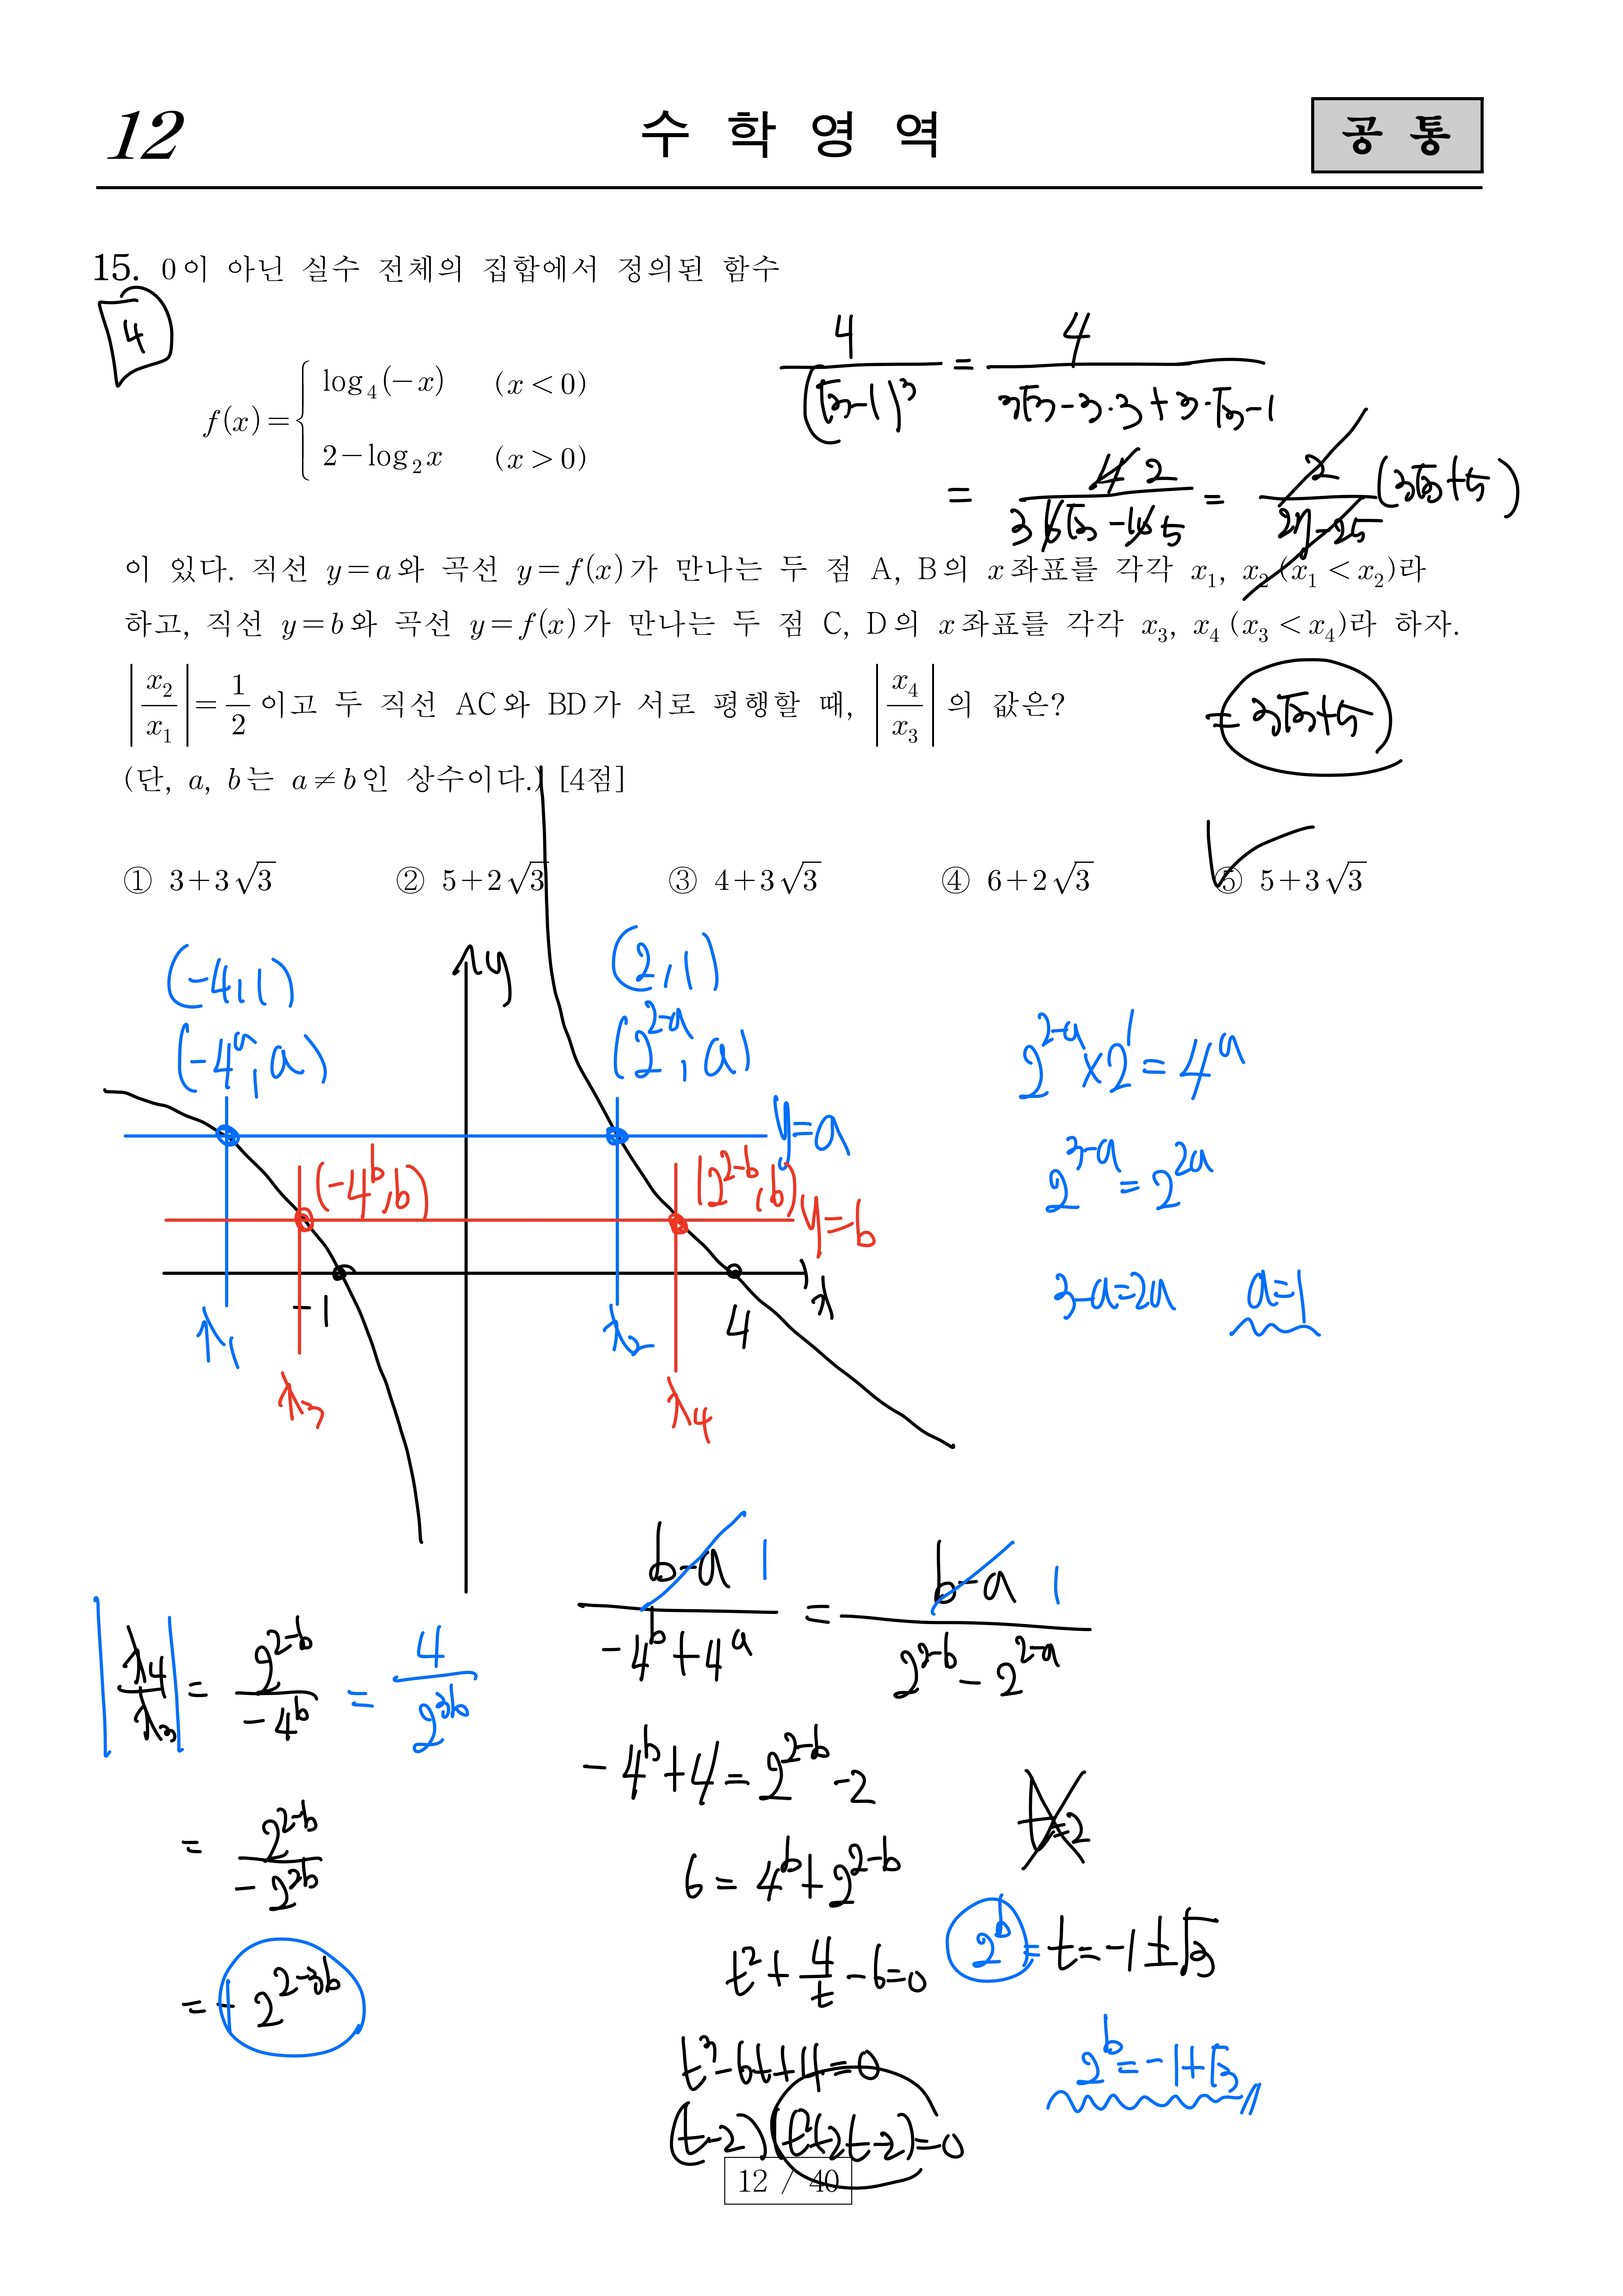 12
수 학 영 역
공 통
15. 0이 아닌 실수 전체의 집합에서 정의된 함수
4
f(x)= { log₄(−x) (x<0)
2−log₂x (x>0)
4/(√3−1)³ = 4/(3√3−3·3+3·√3−1)
= 4 2/(3 6√3−10 5) = 2/(27−25) (3√3+5)
이 있다. 직선 y=a와 곡선 y=f(x)가 만나는 두 점 A, B의 x좌표를 각각 x₁, x₂ (x₁<x₂)라
하고, 직선 y=b와 곡선 y=f(x)가 만나는 두 점 C, D의 x좌표를 각각 x₃, x₄ (x₃<x₄)라 하자.
|x₂/x₁| = 1/2 이고 두 직선 AC와 BD가 서로 평행할 때, |x₄/x₃| 의 값은?
= 3√3+5
(단, a, b는 a≠b인 상수이다.) [4점]
① 3+3√3 ② 5+2√3 ③ 4+3√3 ④ 6+2√3 ⑤ 5+3√3
(−4, 1)
(−4ᵃ, a)
y
(2, 1)
(2²⁻ᵃ, a)
y=a
(−4ᵇ, b)
(2²⁻ᵇ, b)
y=b
−1
4
x
x₁
x₂
x₃
x₄
2²⁻ᵃ×2¹=4ᵃ
2³⁻ᵃ=2²ᵃ
3−a=2a a=1
|x₄/x₃| = 2²⁻ᵇ/−4ᵇ = 4/2³ᵇ
= 2²⁻ᵇ/−2²ᵇ
= −2²⁻³ᵇ
b−a 1/(−4ᵇ+4ᵃ) = b−a 1/(2²⁻ᵇ−2²⁻ᵃ)
−4ᵇ+4=2²⁻ᵇ−2
6=4ᵇ+2²⁻ᵇ
t²+4/t−6=0
t³−6t+4=0
(t−2)(t²+2t−2)=0
t=2
2ᵇ=t=−1±√3
2ᵇ=−1+√3
12 / 40